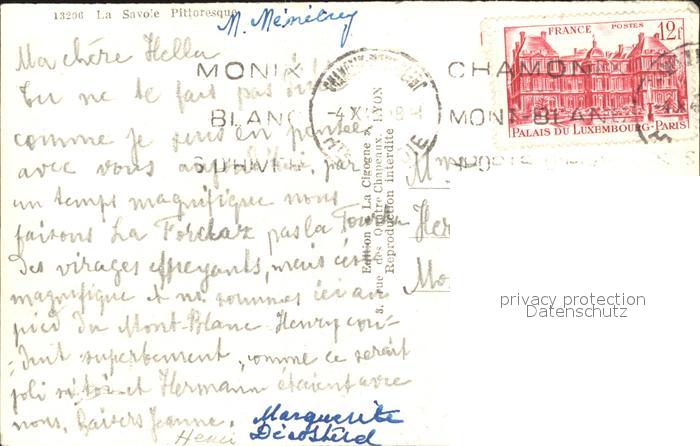 13206 La Savoie Pittoresque
M. Ménétrey
FRANCE POSTES 12f
PALAIS DU LUXEMBOURG-PARIS
CHAMONIX MONT-BLANC
-4 X 18H
MONIX
BLANC
CHAMONI
MONT-BLANC
Ma chère Hella
Tu ne te fais pas
comme je suis en pensée
avec vous aujourd'hui, par
un temps magnifique nous
faisons La Forclaz pas la
Des virages effrayants, mais c'est
magnifique et ns. sommes ici au
pied du Mont-Blanc Henry con-
duit superbement, comme ce serait
joli si toi et Hermann étaient avec
nous, Baisers Jeanne.
Henri
Marguerite
Edition « La Cigogne »
3, rue des Quatre Chapeaux, LYON
Reproduction interdite
Her
Mo
privacy protection
Datenschutz